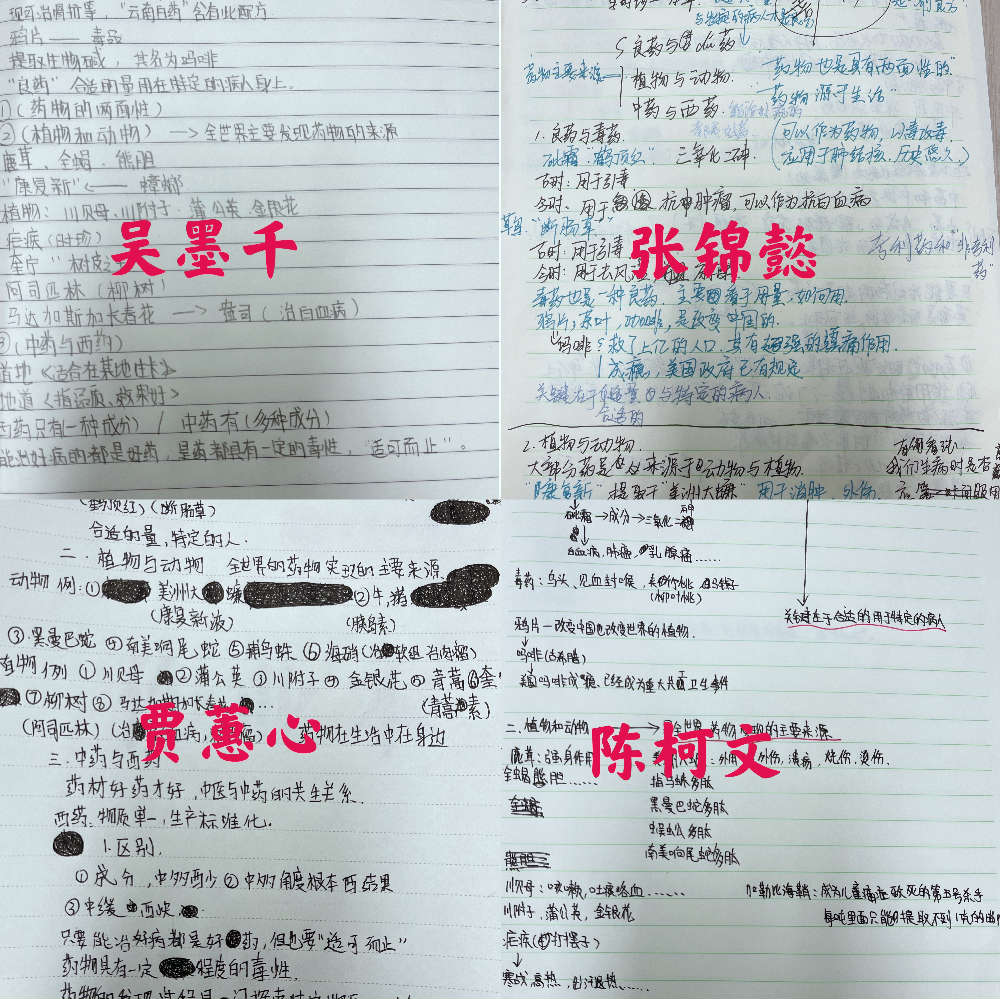 现可治骨折等，"云南白药"含有此配方
鸦片——毒品
提取生物碱，其名为吗啡
"良药"合适的量用在特定的病人身上。
①(药物的两面性)
②(植物和动物)→全世界主要发现药物的来源
鹿茸、全蝎、熊胆
"康复新"←——蟑螂
植物：川贝母、川附子、蒲公英、金银花
疟疾(时珍)
奎宁"树皮
阿司匹林(柳树)
马达加斯加长春花→(治白血病)
③(中药与西药)
道地《适合在某地生长》
地道《指品质、效果好》
西药只有一种成分) / 中药有(多种成分)
能治好病的都是好药，是药都具有一定的毒性，"适可而止"。
吴墨千
与特定的病人
良药与毒药
药物主要来源
植物与动物
中药与西药
"药物也是具有两面性的"
"药物源于生活"
1.良药与毒药
砒霜"鹤顶红" 三氧化二砷
(可以作为药物，以毒攻毒
古时：用于引毒
今时：用于 抗肿瘤，可以作为抗白血病
"断肠草"
古时：用于引毒
今时：用于去风
专利药和"非专利药"
张锦懿
毒药也是一种良药，主要看于用量，如何用
鸦片，茶叶，咖啡，是改变中国的
吗啡
救了上亿的人口，具有超强的镇痛作用
成瘾，美国政府已有规定
关键在于 量与特定的病人
合适的
2.植物与动物
大部分药是 来源于动物与植物
我们生病时是否
"康复新"提取于"美洲大蠊"用于消肿、外伤
(鹤顶红)(断肠草)
合适的量，特定的人.
二.植物与动物 全世界的药物发现的主要来源
动物例：① 美洲大 蠊 ②牛，猪
(康复新液) (胰岛素)
③黑曼巴蛇 ④南美响尾蛇 ⑤捕鸟蛛 ⑥海硝
植物例 ①川贝母 ②蒲公英 ③川附子 ④金银花 ⑤青蒿 ⑥奎
⑦柳树 ⑧马达加斯加长春花 …
(青蒿素)
(阿司匹林) 药物在生活中在身边
贾蕙心
三.中药与西药
药材好药才好，中医与中药的共生关系.
西药.物质单一，生产标准化.
1.区别.
①成分，中多西少 ②中多角度根本 西结果
③中缓 西快
只要能治好病都是好 药，但也要"适可而止"
药物具有一定 程度的毒性.
砒霜→成分→三氧化二砷
白血病，肺癌，乳腺癌……
毒药：乌头、见血封喉、
关键在于合适的用于特定的病人
鸦片—改变中国也改变世界的植物.
吗啡
美国吗啡成瘾，已经成为重大共卫生事件
二.植物和动物→全世界药物发现的主要来源
鹿茸：强身 外伤，溃疡，烧伤，烫伤.
全蝎熊胆……
陈柯文
指马蛛多肽
黑曼巴蛇多肽
蜈蚣多肽
南美响尾蛇多肽
川贝母：咳嗽，吐痰咯血……
川附子，蒲公英，金银花
加勒比海鞘：成为儿童癌症致死的第五号杀手
每吨里面只能够提取不到1克的
疟疾(打摆子)
寒战高热，出汗退热……